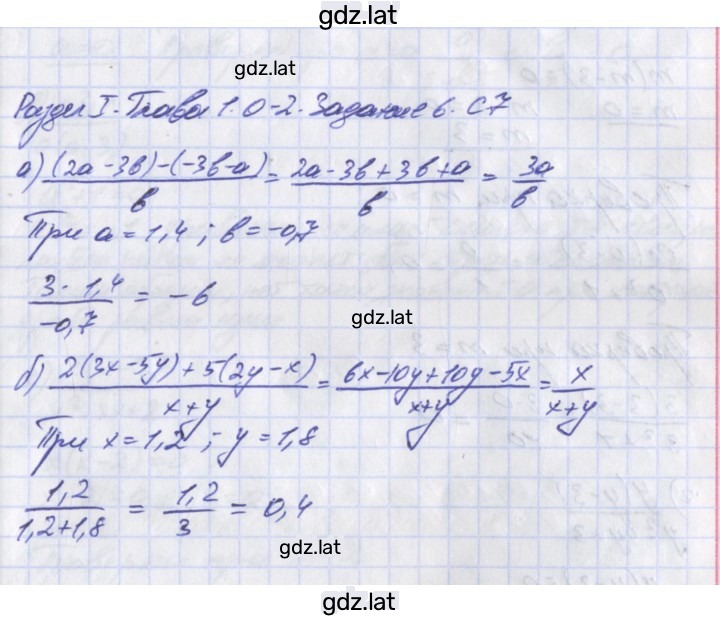 gdz.lat
gdz.lat
Раздел I. Глава 1. О-2. Задание 6. С7
а) ((2a - 3в) - (-3в - a))/в = (2a - 3в + 3в + a)/в = 3a/в
При a = 1,4 ; в = -0,7
(3 · 1,4)/(-0,7) = -6
gdz.lat
б) (2(3x - 5y) + 5(2y - x))/(x+y) = (6x - 10y + 10y - 5x)/(x+y) = x/(x+y)
При x = 1,2 ; y = 1,8
1,2/(1,2+1,8) = 1,2/3 = 0,4
gdz.lat
gdz.lat